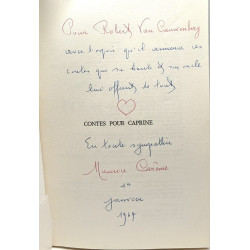 Pour Robert Van Cauwenberg
avec l'espoir qu'il aimera ces
contes que sa bonté et son
leur offrent de tout
CONTES POUR CAPRINE
En toute sympathie
Maurice Carême
janvier
1964